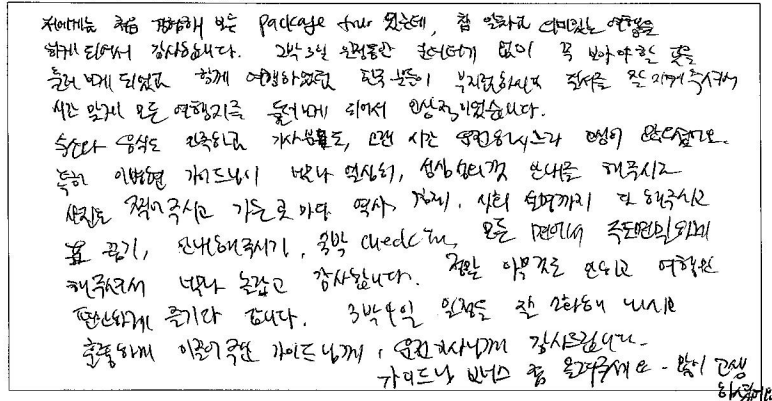 저에게는 처음 경험해 보는 package tour 였는데, 참 알차고 재미있는 여행을
하게 되어서 감사합니다. 2박3일 일정동안 없이 꼭 보아야 할 곳을
둘러 보게 되었고 함께 여행하였던 한국 분들이 부지런하시고 질서를 잘 지켜주셔서
시간 맞게 모든 여행지를 둘러보게 되어서 인상적이었습니다.
숙소와 음식도 만족하고 기사분들도, 오랜 시간 운전하시느라 고생이 많으셨어요.
특히 가이드님이 너무나 열심히, 성심성의껏 안내를 해주시고
사진도 찍어주시고 가는 곳마다 역사, 지리, 사회 설명까지 다 해주시고
표 끊기, 안내해주시기, 숙박 check in, 모든 면에서 주도면밀하게
해주셔서 너무나 놀랍고 감사합니다. 정말 아무것도 안하고 여행만
편안하게 즐기다 갑니다. 3박4일 일정을 잘 소화해 내시고
훌륭하게 이끌어주신 가이드님께, 운전기사님께 감사드립니다.
가이드님 보너스 좀 올려주세요 - 많이 고생
하셨어요